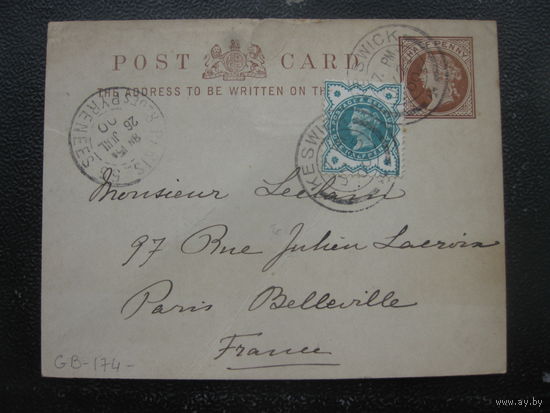 POST CARD
THE ADDRESS TO BE WRITTEN ON THE
HALF PENNY
KESWICK
PM
KESWICK
PARIS
R. DES PYRENEES
26
JUIL
00
Monsieur
97 Rue Julien Lacroix
Paris Belleville
France
GB-174-
www.ay.by